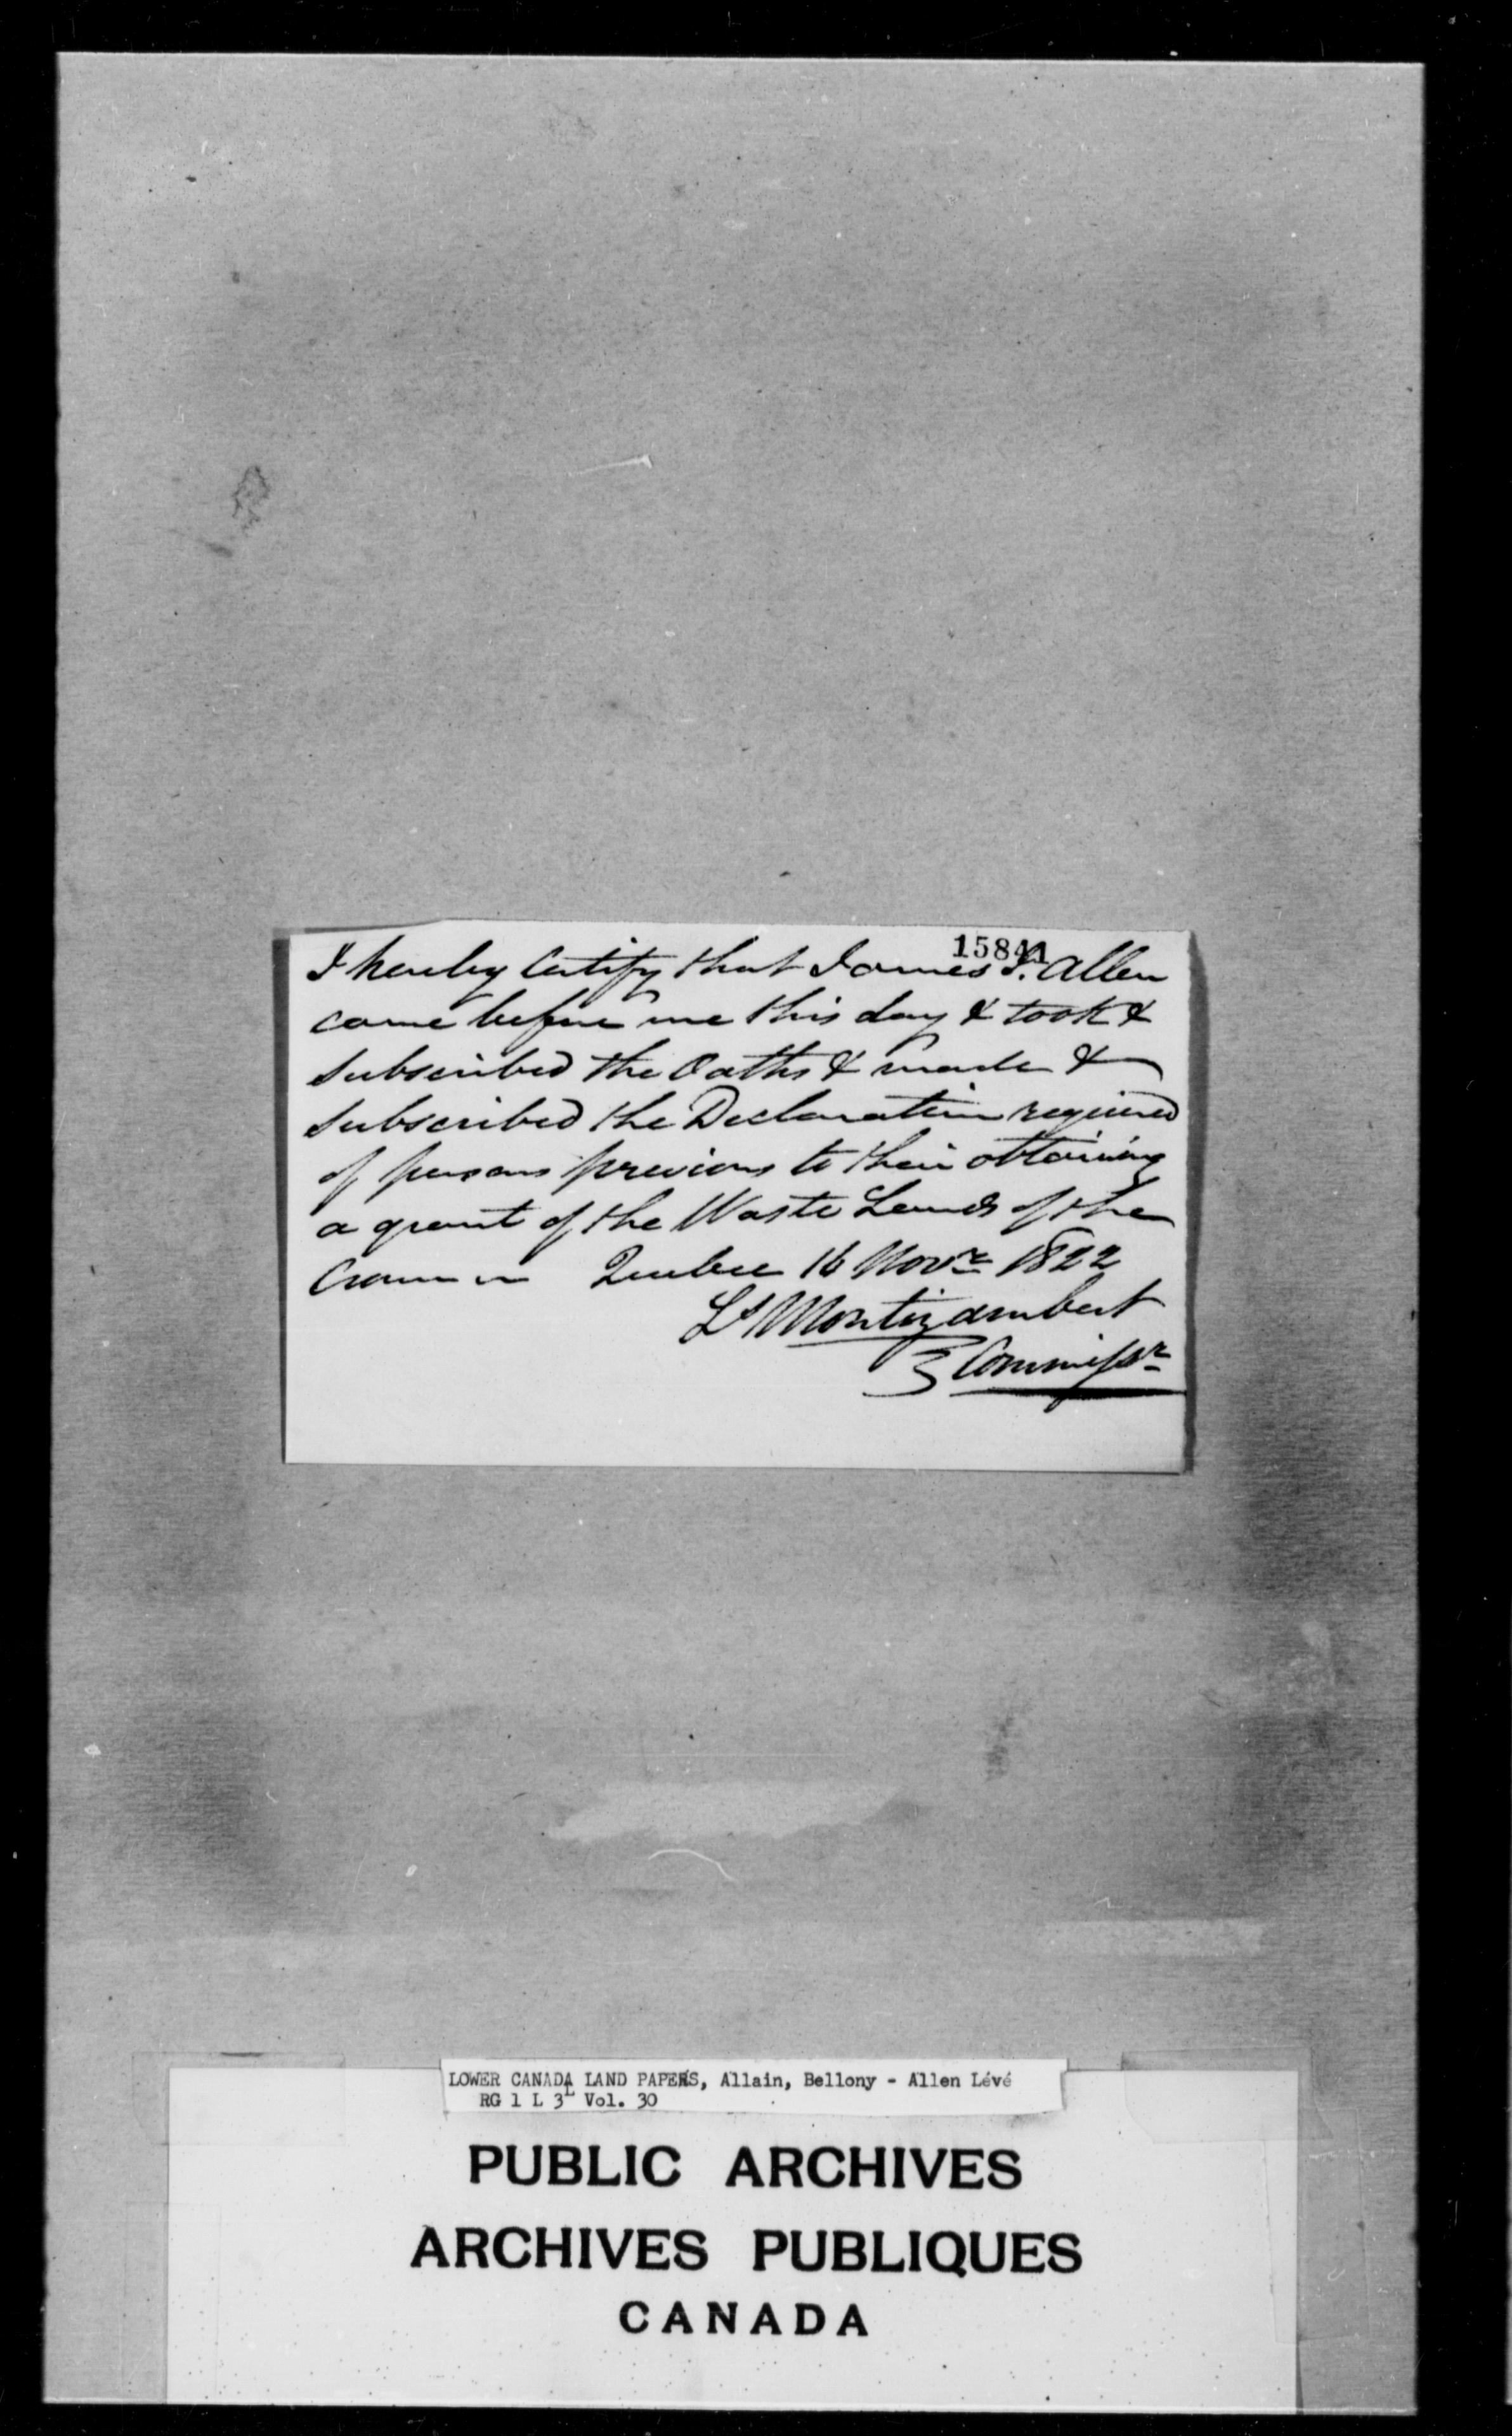 15841
I hereby Certify that James S. Allen
came before me this day & took &
subscribed the Oaths & made &
subscribed the Declaration required
of persons previous to their obtaining
a grant of the Waste Lands of the
Crown Quebec 16 Novr 1822
Ls Montizambert
Commissr
LOWER CANADA LAND PAPERS, Allain, Bellony - Allen Lévé
RG 1 L 3L Vol. 30
PUBLIC ARCHIVES
ARCHIVES PUBLIQUES
CANADA